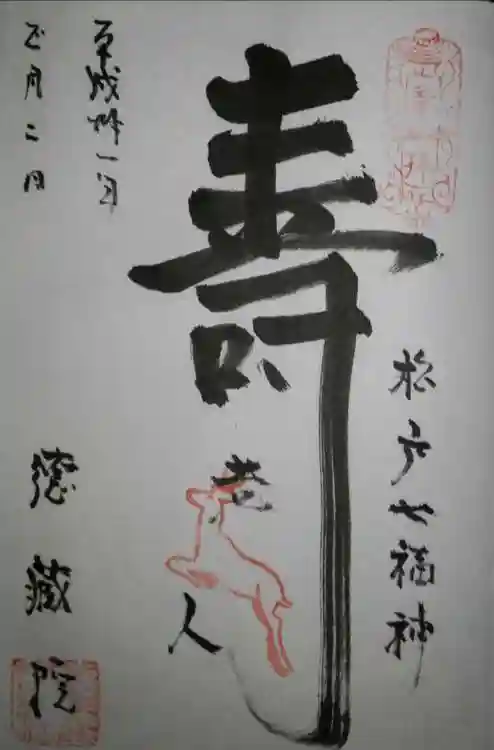 松戸七福神
寿老人
平成卅一年
正月二日
德藏院